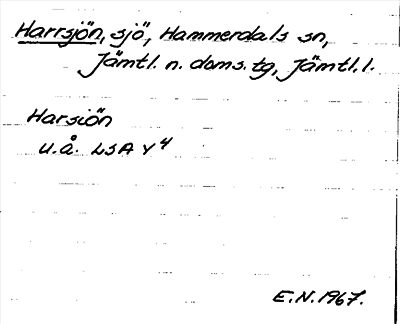 Harrsjön, sjö, Hammerdals sn,
Jämtl. n. doms. tg, Jämtl. l.
Harsiön
u.å. LSA Y4
E.N. 1967.